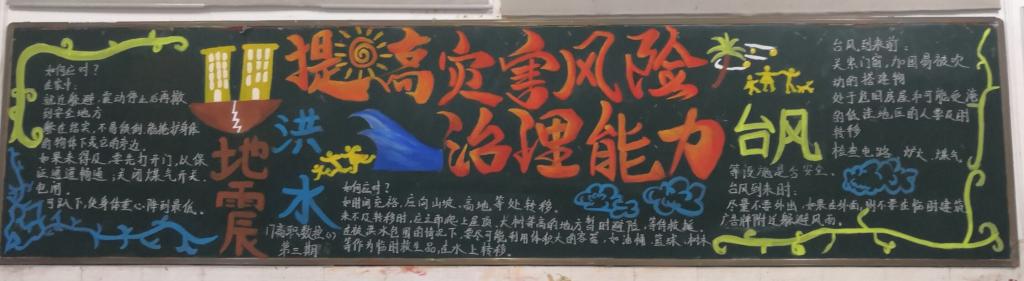 提高灾害风险
治理能力
地震
如何应对？
在家中：
就近躲避，震动停止后再撤
到安全地方
躲在结实、不易倾倒、能掩护身体
的物体下或它的旁边
如果来得及，要先打开门，以保
证通道畅通，关闭煤气开关、
电闸。
可趴下，使身体重心降到最低。
洪水
如何应对？
如时间充裕，应向山坡、高地等处转移。
来不及转移时，应立即爬上屋顶、大树等高的地方暂时避险，等待救援。
在被洪水包围的情况下，要尽可能利用体积大的容器，如油桶、篮球、树木
等作为临时救生品，在水上转移。
17高职数控(1)
第三期
台风
台风到来前：
关紧门窗，加固易被吹
动的搭建物
处于危旧房屋和可能受淹
的低洼地区的人要及时
转移
检查电路、炉火、煤气
等设施是否安全。
台风到来时：
尽量不要外出，如果在外面，则不要在临时建筑
广告牌附近躲避风雨。